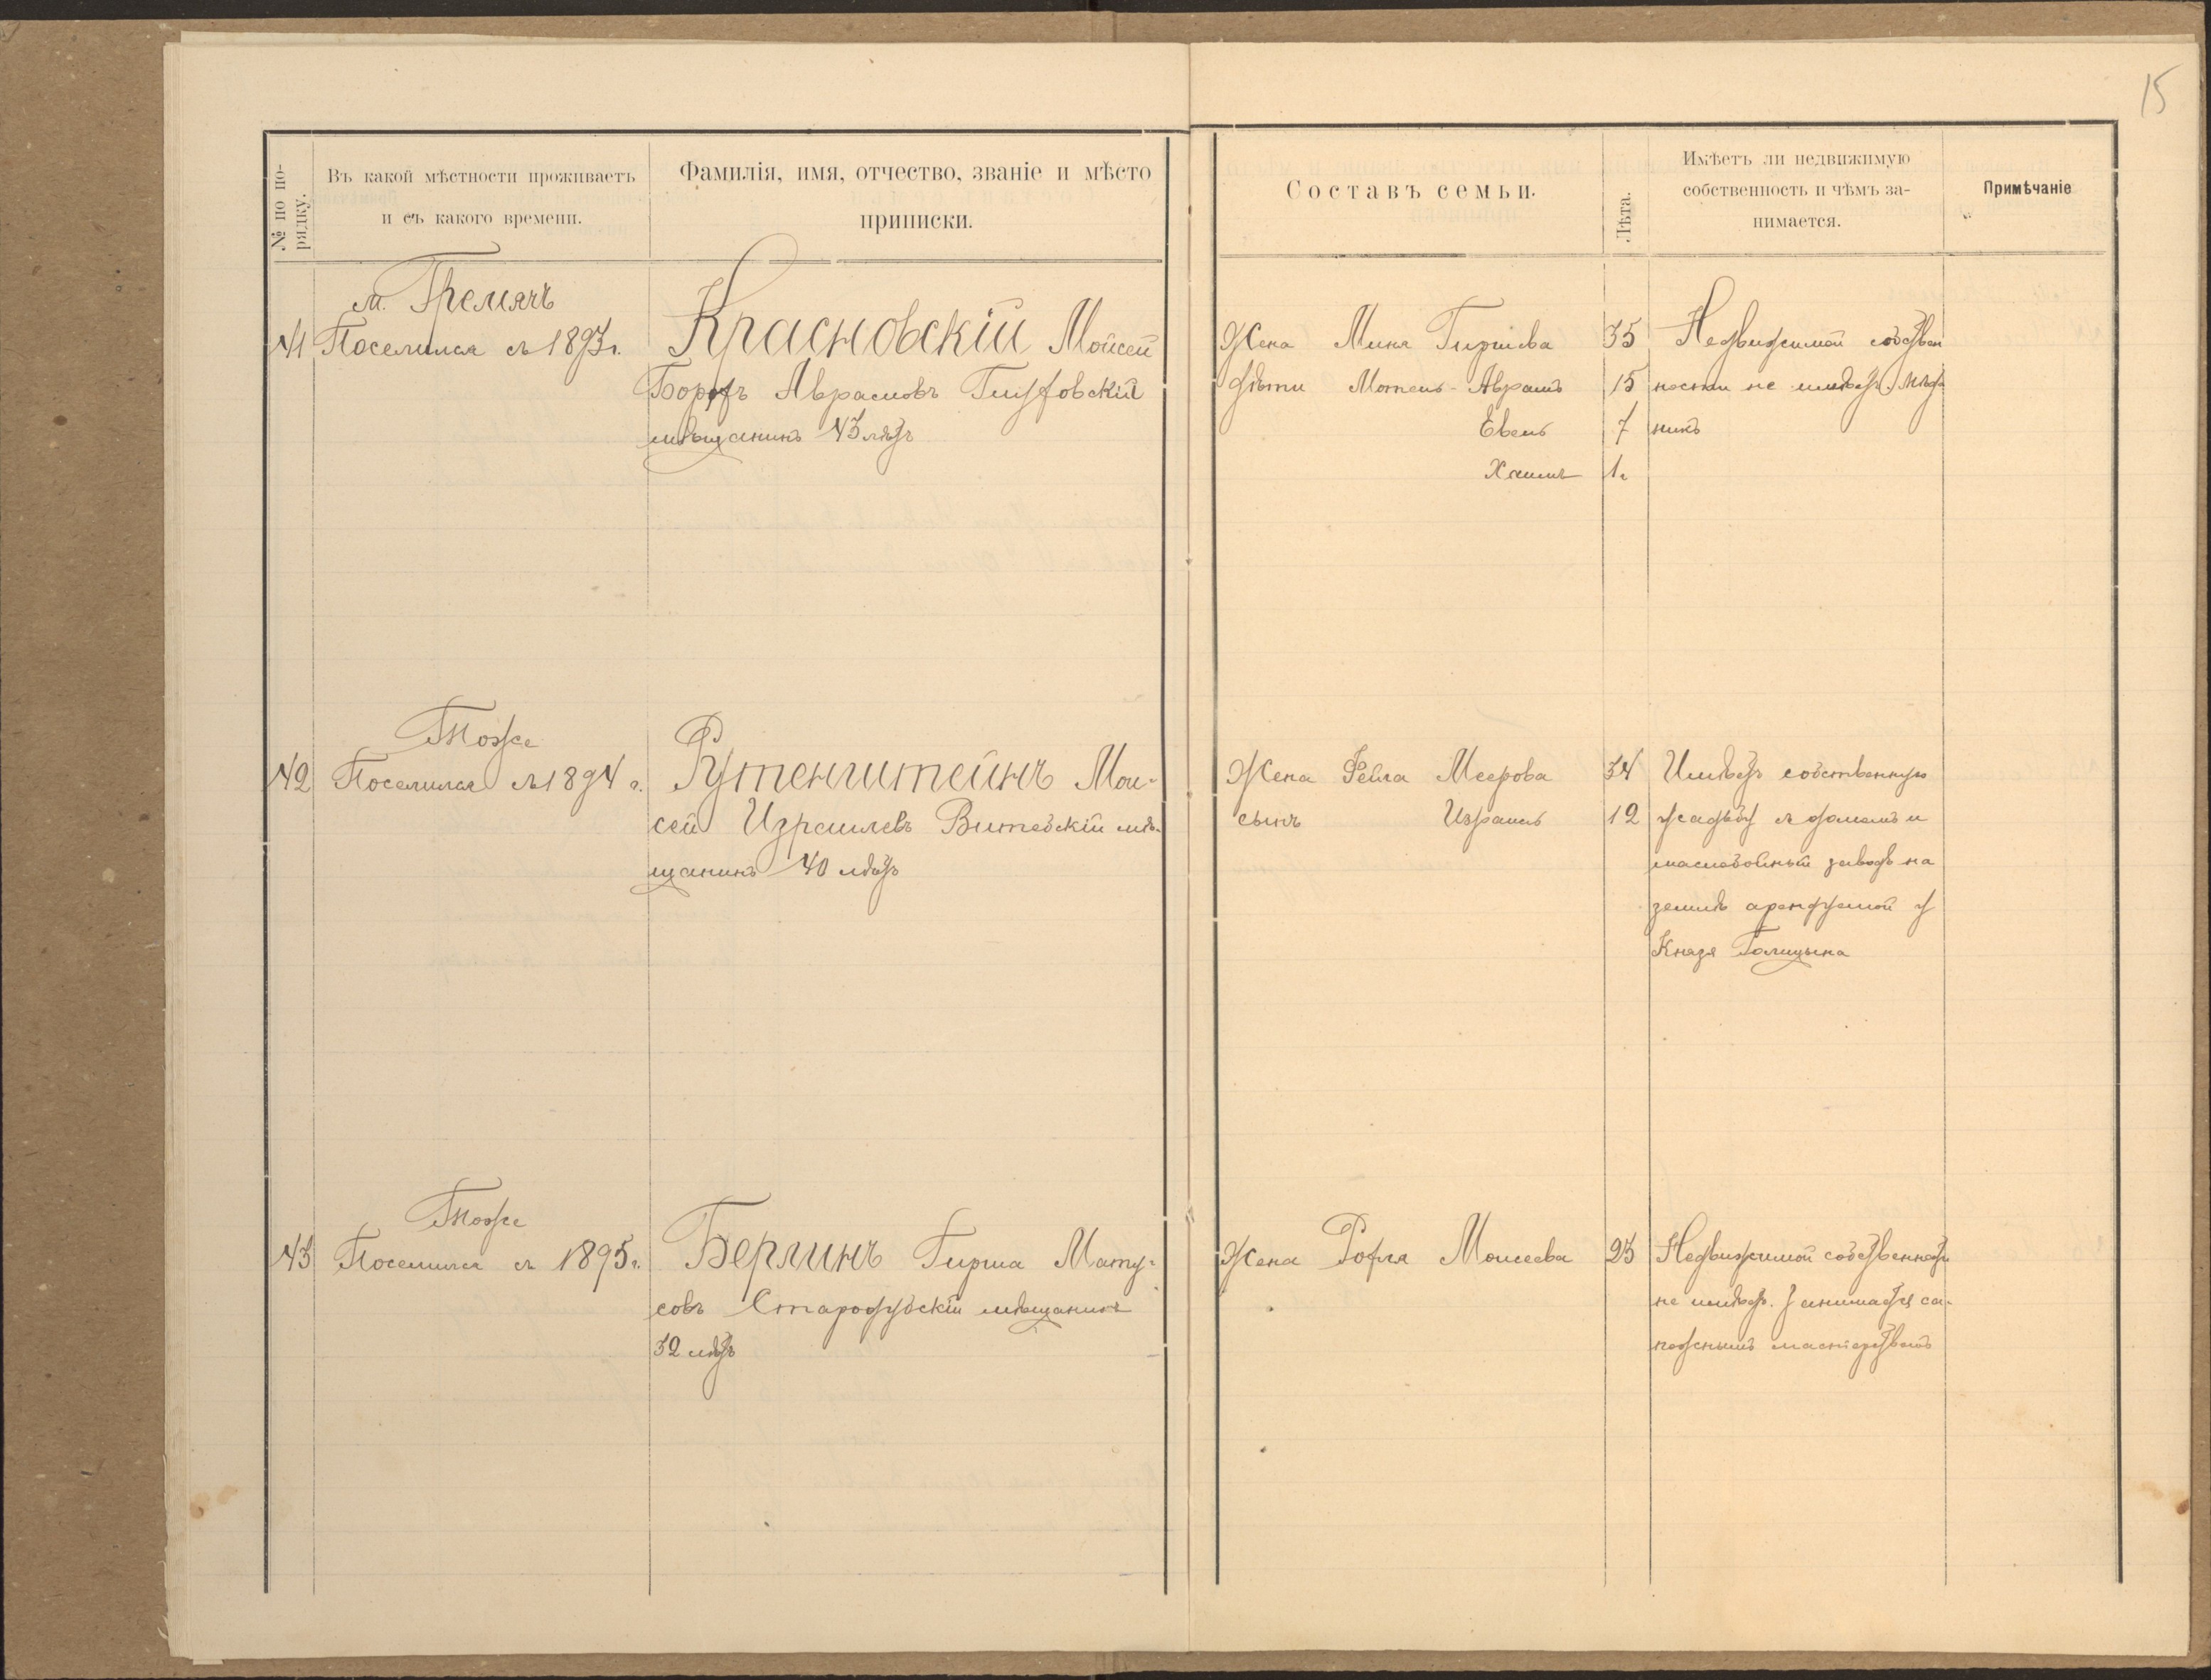 15
№ по по-
рядку.
Въ какой мѣстности проживаетъ
и съ какого времени.
Фамилія, имя, отчество, званіе и мѣсто
приписки.
Составъ семьи.
Лѣта.
Имѣетъ ли недвижимую
собственность и чѣмъ за-
нимается.
Примѣчаніе
м. Гремячъ
41 Поселился съ 1893 г.
Красновскій Мойсей
Борохъ Абрамовъ
мѣщанинъ 43 лѣтъ
Жена Мина Гиршева 35
дѣти Мотель-Абрамъ 15
Евель 7
Хаимъ 1 г
Недвижимой собствен
ности не имѣетъ. Мѣд
никъ
Тоже
42 Поселился съ 1894 г.
Рутенштейнъ Мои-
сей Израилевъ Витебскій мѣ-
щанинъ 40 лѣтъ
Жена Фейга Меерова 34
сынъ Израиль 12
Имѣетъ собственную
усадьбу съ домомъ и
маслобойный заводъ на
землѣ арендуемой у
Князя Голицына
Тоже
43 Поселился съ 1895 г.
Берлинъ Гирша Мату-
совъ Стародубскій мѣщанинъ
32 лѣтъ
Жена Рохля Моисеева 23
Недвижимой собственности
не имѣетъ. Занимается са-
пожнымъ мастерствомъ